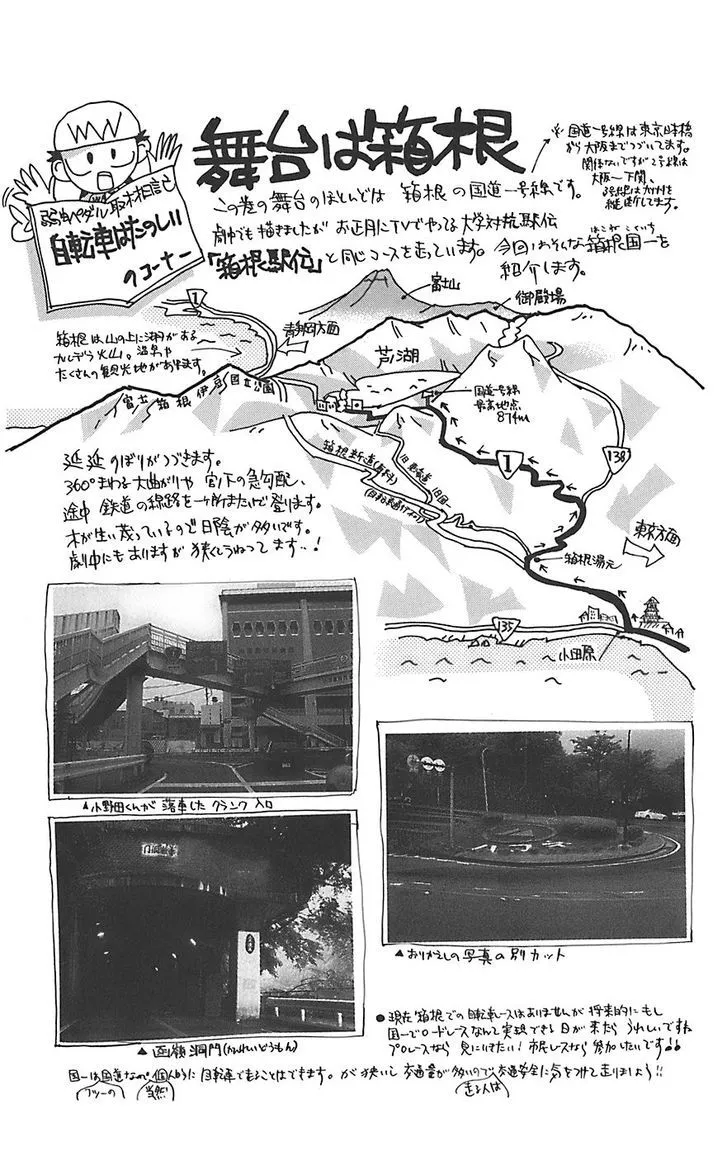 舞台は箱根
弱虫ペダル取材日記
自転車はたのしい
のコーナー
W W
この巻の舞台のほとんどは 箱根の国道一号線です。
劇中でも描きましたが お正月にTVでやってる大学対抗駅伝
「箱根駅伝」と同じコースを走っています。今回はそんな箱根国一を
はこね こくいち
紹介します。
※国道一号線は東京日本橋
から大阪までつづいてます。
関係ないですが2号線は
大阪〜下関、
3号線は九州を
縦断してます。
箱根は山の上に湖がある
カルデラ火山。温泉や
たくさんの観光地があります。
1
静岡方面
富士山
御殿場
芦ノ湖
富士箱根伊豆国立公園
国道一号線
最高地点
874m
箱根新道(有料)
(自転車通行不可)
旧東海道
旧国一
1
138
東京方面
箱根湯元
135
小田原
延延のぼりがつづきます。
360°まわる大曲がりや 宮ノ下の急勾配、
途中 鉄道の線路を一ヶ所またいで登ります。
木が生い茂っているので日陰が多いです。
劇中にもありますが 狭くてうねってます…!
▲小野田くんが 落車した クランク 入口
▲おりかえしの写真の別カット
▲函嶺洞門(かんれいどうもん)
●現在 箱根での自転車レースはありませんが 将来的にもし
国一でロードレースなんて実現できる日が来たら うれしいですね
プロレースなら 見にいきたい!市民レースなら 参加したいです!!
国一は国道なので 個人的に 自転車で走ることはできます。が 狭いし 交通量が多いので 交通安全に気をつけて走りましょう!!
フツーの 当然 走る人は